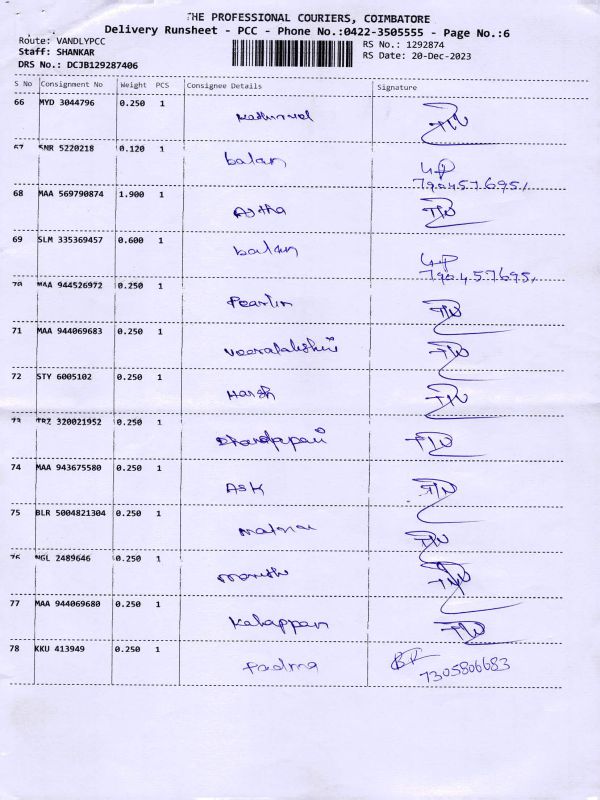 THE PROFESSIONAL COURIERS, COIMBATORE
Delivery Runsheet - PCC - Phone No.:0422-3505555 - Page No.:6
Route: VANDLYPCC
RS No.: 1292874
Staff: SHANKAR
RS Date: 20-Dec-2023
DRS No.: DCJB129287406
S No Consignment No Weight PCS Consignee Details Signature
66 MYD 3044796 0.250 1
67 SNR 5220218 0.120 1
balan
68 MAA 569790874 1.900 1
Astha
69 SLM 335369457 0.600 1
balan
70 MAA 944526972 0.250 1
Pearlin
71 MAA 944069683 0.250 1
72 STY 6005102 0.250 1
Harsh
73 TRZ 320021952 0.250 1
74 MAA 943675580 0.250 1
ASK
75 BLR 5004821304 0.250 1
76 NGL 2489646 0.250 1
77 MAA 944069680 0.250 1
Kalappan
78 KKU 413949 0.250 1
Padma
7305806683